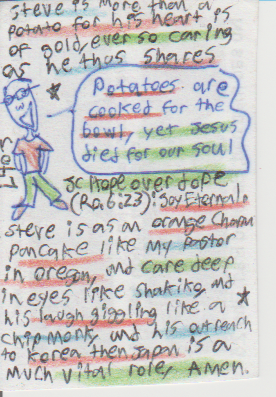 Steve is more than a
potato for his heart is
of gold, ever so caring
as he thus shares
Potatoes are
cooked for the
bowl, yet Jesus
died for our soul
JC Hope over dope
(Rabi23): Joy Eternal.
Steve is as an orange Charm
pancake like my Pastor
in oregon, and care deep
in eyes like shaking, and
his laugh giggling like a
chipmonk, and his outreach
to korea then Japan is a
much vital role, Amen.